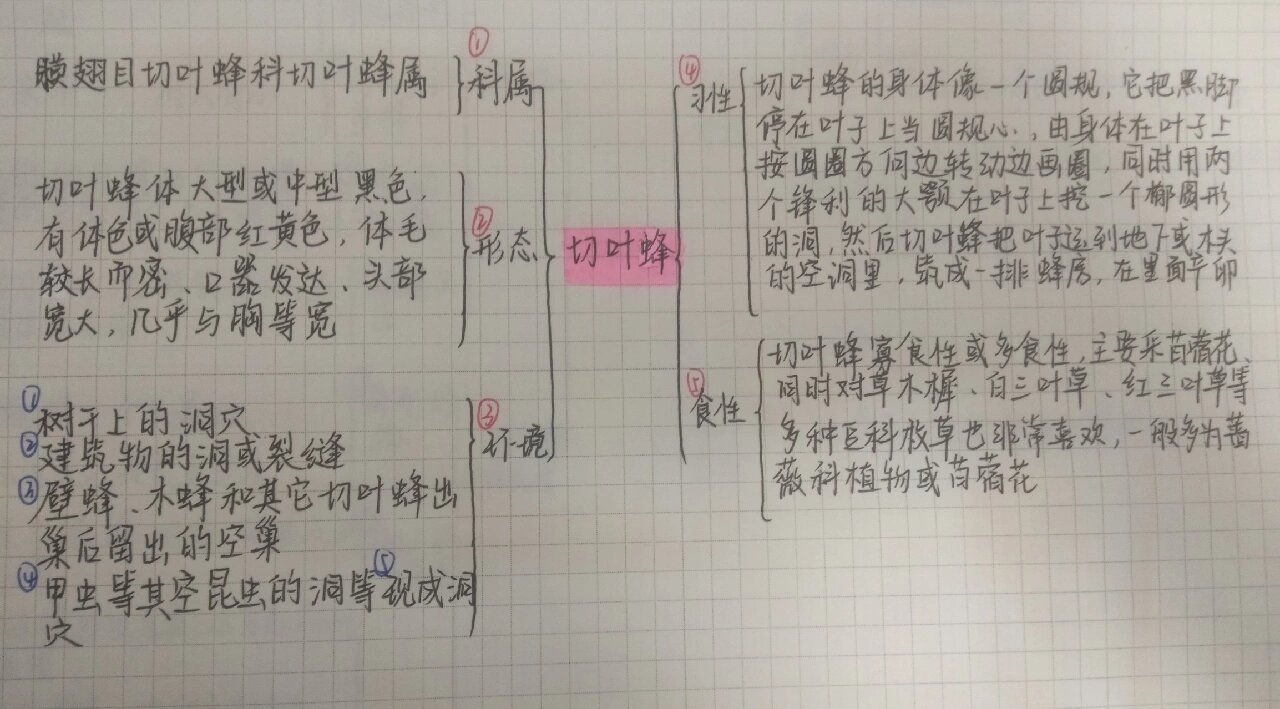 切叶蜂
①
科属
膜翅目切叶蜂科切叶蜂属
②
形态
切叶蜂体大型或中型黑色,
有体色或腹部红黄色,体毛
较长而密、口器发达、头部
宽大,几乎与胸等宽
③
环境
①树干上的洞穴
②建筑物的洞或裂缝
③壁蜂、木蜂和其它切叶蜂出
巢后留出的空巢
④甲虫等其空昆虫的洞等⑤现成洞
穴
④
习性
切叶蜂的身体像一个圆规,它把黑脚
停在叶子上当圆规心.,由身体在叶子上
按圆圈方向边转动边画圈,同时用两
个锋利的大颚在叶子上挖一个椭圆形
的洞,然后切叶蜂把叶子运到地下或木头
的空洞里,筑成一排蜂房,在里面产卵
⑤
食性
切叶蜂寡食性或多食性,主要采苜蓿花、
同时对草木樨、白三叶草、红三叶草等
多种豆科牧草也非常喜欢,一般多为蔷
薇科植物或苜蓿花